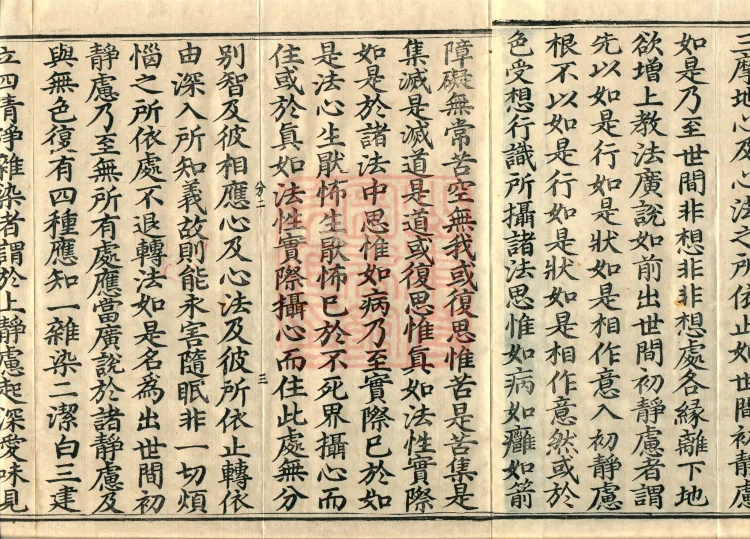 三摩地心及心法之所依止如世間初靜慮
如是乃至世間非想非非想處各緣離下地
欲增上教法廣說如前出世間初靜慮者謂
先以如是行如是狀如是相作意入初靜慮
根不以如是行如是狀如是相作意然或於
色受想行識所攝諸法思惟如病如癰如箭
障礙無常苦空無我或復思惟苦是苦集是
集滅是滅道是道或復思惟真如法性實際
如是於諸法中思惟如病乃至實際已於如
是法心生厭怖生厭怖已於不死界攝心而
住或於真如法性實際攝心而住此處無分
分二 三
別智及彼相應心及心法及彼所依止轉依
由深入所知義故則能永害隨眠非一切煩
惱之所依處不退轉法如是名為出世間初
靜慮乃至無所有處應當廣說於諸靜慮及
與無色復有四種應知一雜染二潔白三建
立四清淨雜染者謂於上靜慮起深愛味見